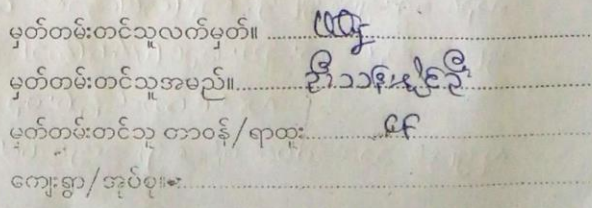 မှတ်တမ်းတင်သူလက်မှတ်။
မှတ်တမ်းတင်သူအမည်။ ဦးသန်းနိုင်ဦး
မှတ်တမ်းတင်သူ တာဝန်/ရာထူး
ကျေးရွာ/အုပ်စု။